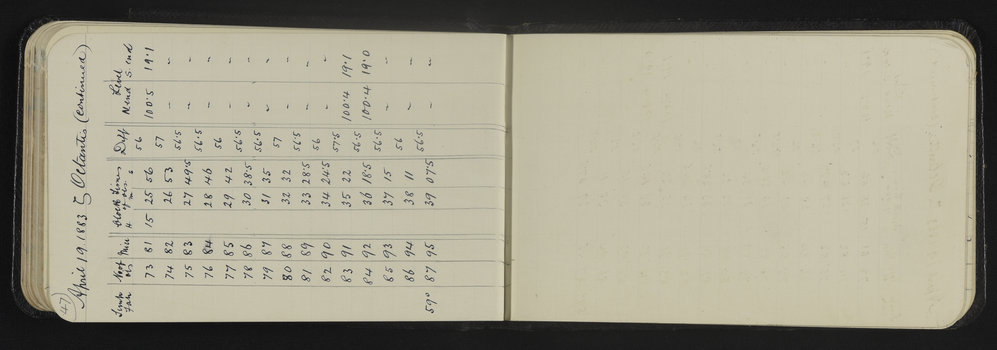 47)
April 19. 1883 ζ Octantis (continued)
Temp Fah No of obs Clock Times of obs Diff Level
H m s N end S end
73 81 15 25 56 56 100.5 19.1
74 82 26 53 57 - -
75 83 27 49.5 56.5 - -
76 84 28 46 56.5 - -
77 85 29 42 56 - -
78 86 30 38.5 56.5 - -
79 87 31 35 56.5 - -
80 88 32 32 57 - -
81 89 33 28.5 56.5 - -
82 90 34 24.5 56 - -
83 91 35 22 57.5 100.4 19.1
84 92 36 18.5 56.5 100.4 19.0
85 93 37 15 56.5 - -
86 94 38 11 56 - -
59° 87 95 39 07.5 56.5 - -